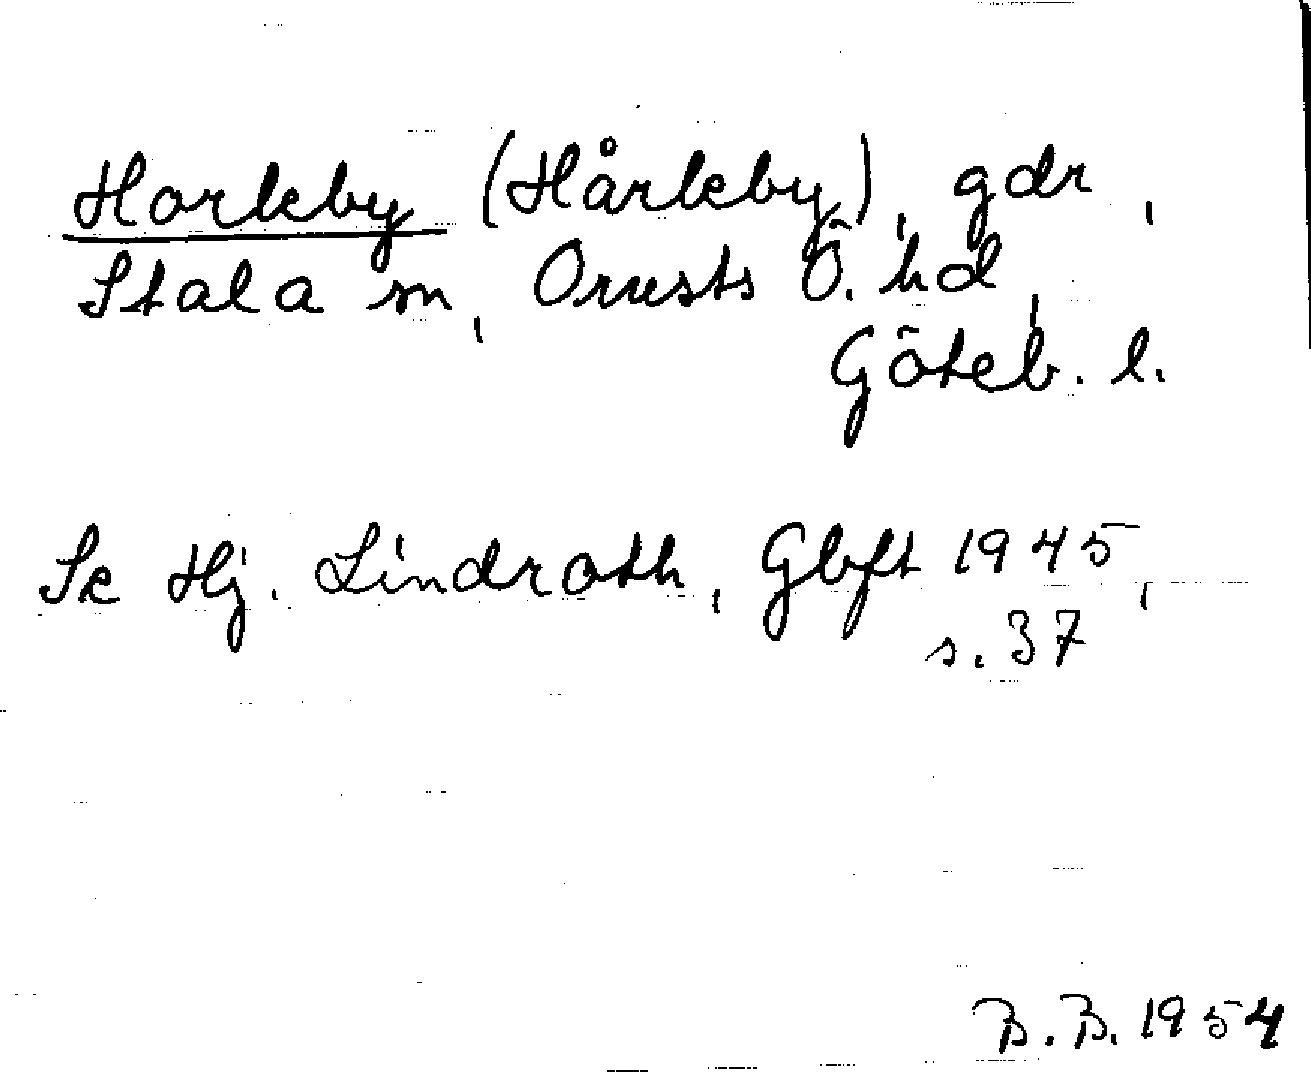 Horleby (Hårleby), gdr,
Stala sn, Orusts Ö. hd,
Göteb. l.
Se Hj. Lindroth, Gbft 1945,
s. 37
B.B. 1954